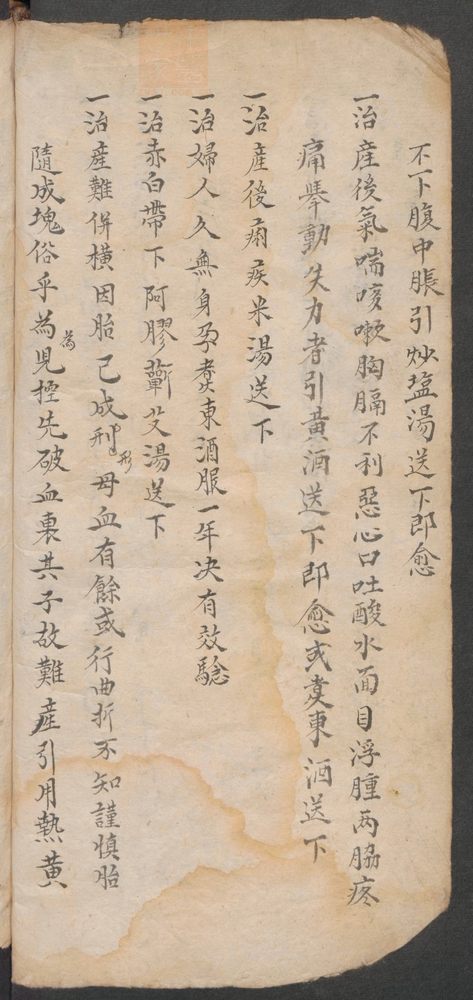 不下腹中脹引炒塩湯送下即愈
一治產後氣喘咳嗽胸膈不利惡心口吐酸水面目浮腫两脇疼
痛舉動失力者引黄酒送下即愈或煑東酒送下
一治產後痢疾米湯送下
一治婦人久無身孕煑東酒服一年决有效騐
一治赤白帶下阿膠蘄艾湯送下
一治產難併横因胎已成刑形母血有餘或行曲折不知謹慎胎
隨成塊俗乎為為児控先破血裏其子故難產引用熱黄